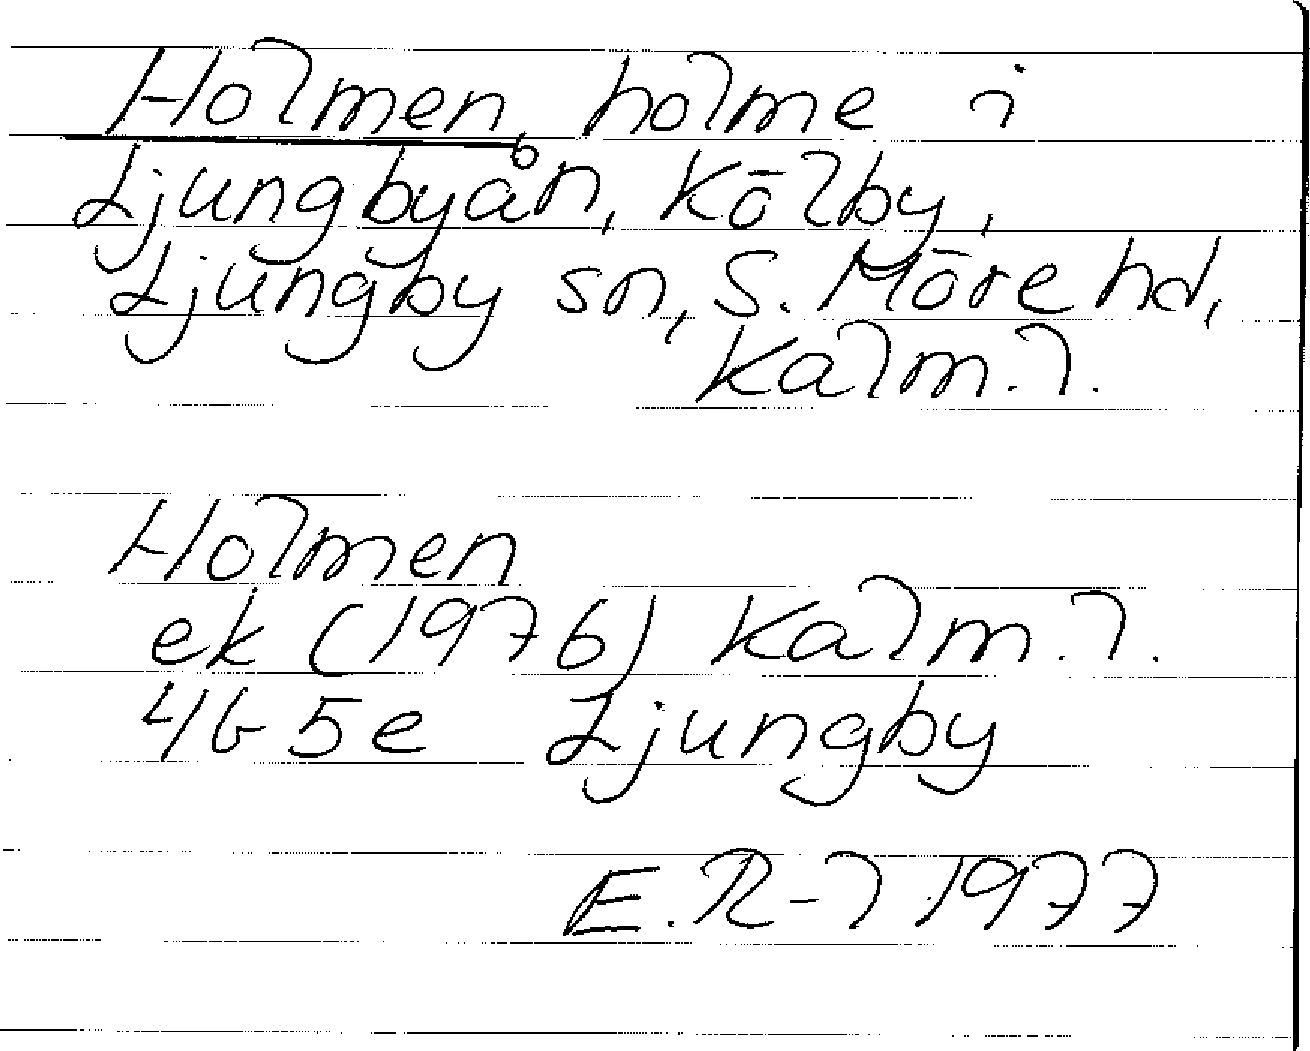 Holmen, holme i
Ljungbyån, Kölby,
Ljungby sn, S. Möre hd,
Kalm. l.
Holmen
ek (1976) Kalm. l.
4G 5e Ljungby
E. R-l 1977